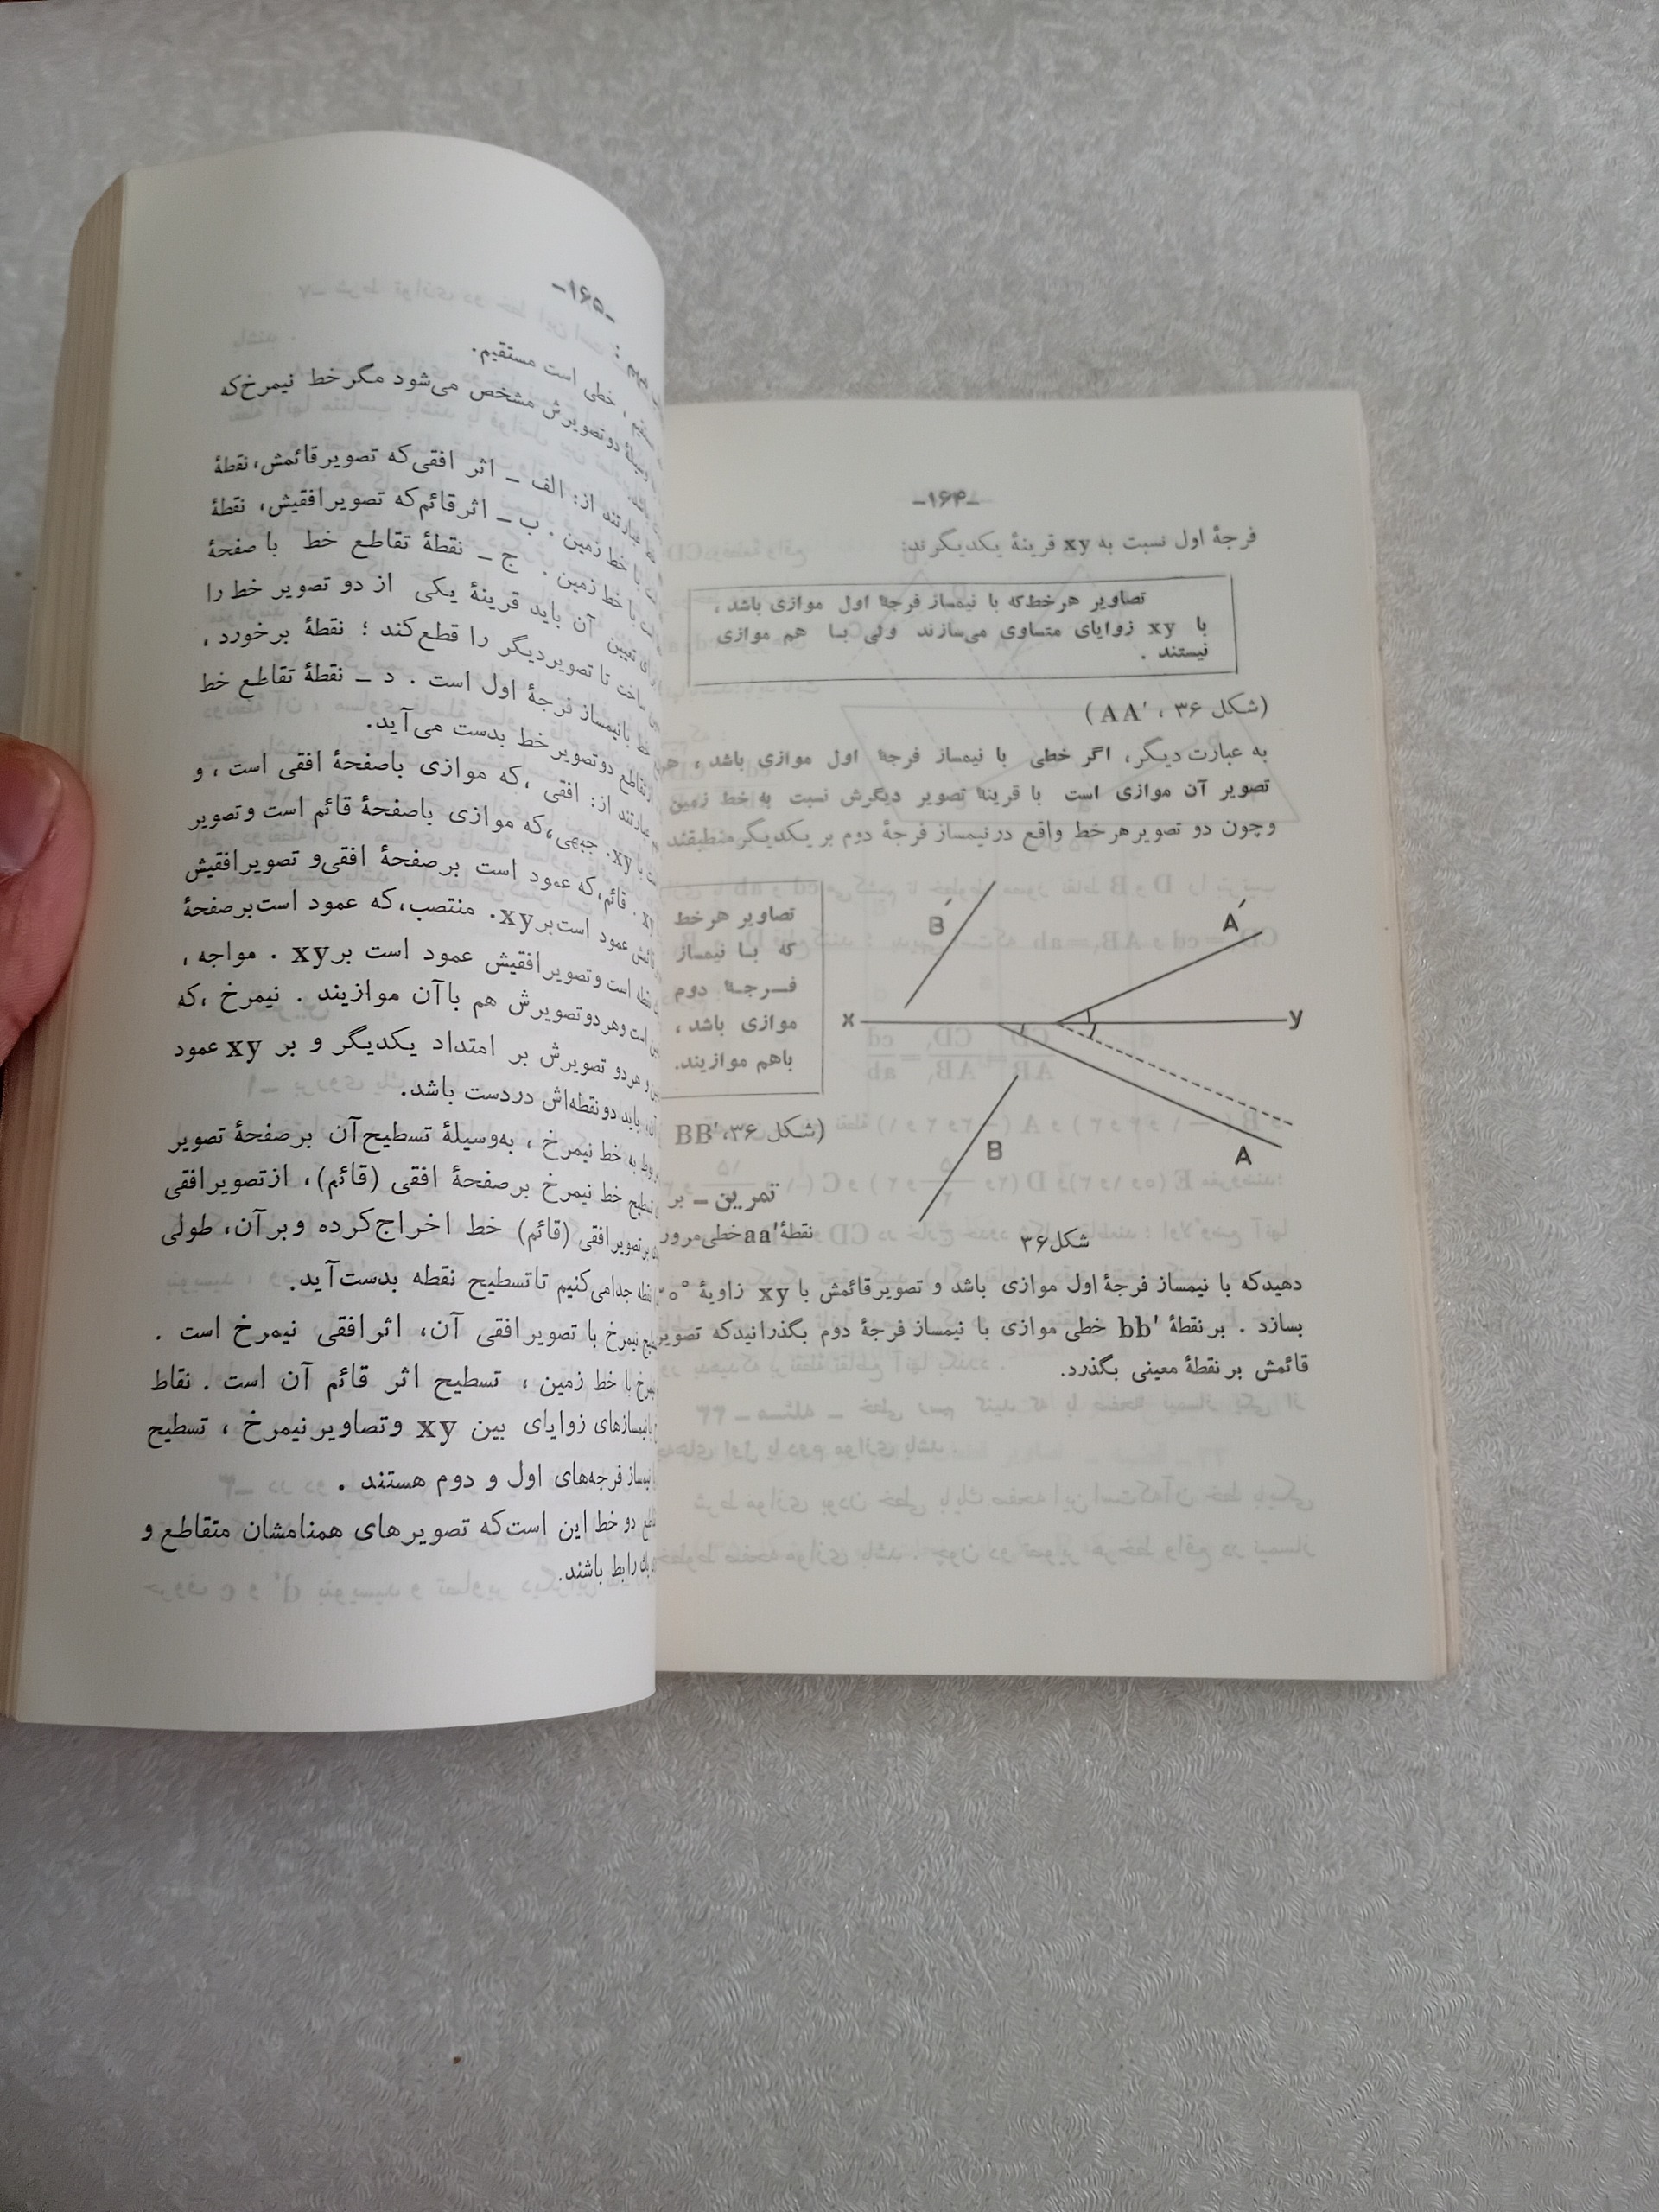 -۱۶۴-
فرجهٔ اول نسبت به xy قرینهٔ یکدیگرند:
تصاویر هرخط‌که با نیمساز فرجهٔ اول موازی باشد،
با xy زوایای متساوی می‌سازند ولی بـا هم موازی
نیستند .
(شکل ۳۶ ، AA′)
به عبارت دیگر، اگر خطی با نیمساز فرجهٔ اول موازی باشد ، هر
تصویر آن موازی است با قرینهٔ تصویر دیگرش نسبت به خط زمین
وچون دو تصویر هرخط واقع درنیمساز فرجهٔ دوم بر یکدیگر منطبقند
تصاویر هرخط
که بـا نیمساز
فـرجـهٔ دوم
موازی باشد ،
باهم موازیند.
(شکل ۳۶، BB′
تمرین ـ بر
نقطهٔ aa′ خطی‌مرور
B′
A′
x
y
B
A
شکل ۳۶
دهیدکه با نیمساز فرجهٔ اول موازی باشد و تصویرقائمش با xy زاویهٔ
بسازد . برنقطهٔ bb′ خطی موازی با نیمساز فرجهٔ دوم بگذرانیدکه تصویر
قائمش برنقطهٔ معینی بگذرد.
-۱۶۵-
، خطی است مستقیم.
دوتصویرش مشخص می‌شود مگر خط نیمرخ‌که
عبارتند از: الف ـ اثر افقی‌که تصویرقائمش، نقطهٔ
با خط زمین . ب ـ اثرقائم‌که تصویرافقیش، نقطهٔ
با خط زمین . ج ـ نقطهٔ تقاطع خط با صفحهٔ
تعیین آن باید قرینهٔ یکی از دو تصویر خط را
ساخت تا تصویردیگر را قطع‌کند ؛ نقطهٔ برخورد ،
خط بانیمساز فرجهٔ اول است . د ـ نقطهٔ تقاطع خط
تقاطع دوتصویر خط بدست می‌آید.
عبارتند از: افقی ، که موازی باصفحهٔ افقی است ، و
با xy. جبهی،که موازی باصفحهٔ قائم است وتصویر
xy . قائم،که عمود است برصفحهٔ افقی‌و تصویرافقیش
عمود است‌بر xy. منتصب،که عمود است‌برصفحهٔ
نقطه است وتصویرافقیش عمود است بر xy . مواجه ،
است وهردوتصویرش هم باآن موازیند . نیمرخ ،که
و هردو تصویرش بر امتداد یکدیگر و بر xy عمود
باید دونقطه‌اش دردست باشد.
به خط نیمرخ ، به‌وسیلهٔ تسطیح‌آن برصفحهٔ تصویر
خط نیمرخ برصفحهٔ افقی (قائم)، ازتصویرافقی
برتصویرافقی (قائم) خط اخراج‌کرده وبرآن، طولی
جدامی‌کنیم تاتسطیح نقطه بدست‌آید.
نیمرخ با تصویرافقی آن، اثرافقی نیمرخ است .
با خط زمین ، تسطیح اثر قائم آن است . نقاط
بانیمسازهای زوایای بین xy وتصاویرنیمرخ ، تسطیح
نیمساز فرجه‌های اول و دوم هستند .
دو خط این است‌که تصویرهای همنامشان متقاطع و
رابط باشند.